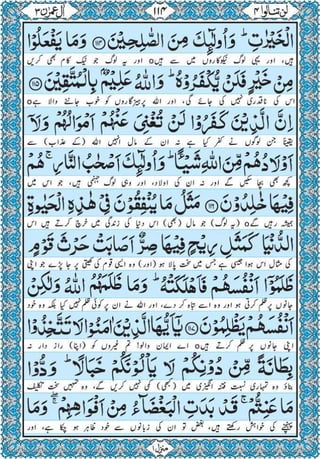 لن تنالوا ٤ ١١٤ اٰل عمرٰن ٣
الْخَيْرٰتِ ؕ وَاُولٰٓئِكَ مِنَ الصّٰلِحِيْنَ ﴿۱۱۴﴾ وَمَا يَفْعَلُوْا
ہیں، اور یہی لوگ نیکوکاروں میں سے ہیں○ اور یہ لوگ جو نیک کام بھی کریں
مِنْ خَيْرٍ فَلَنْ يُّكْفَرُوْهُ ؕ وَاللّٰهُ عَلِيْمٌۢ بِالْمُتَّقِيْنَ ﴿۱۱۵﴾
اس کی ناقدری نہیں کی جائے گی، اور اللہ پرہیزگاروں کو خوب جاننے والا ہے○
اِنَّ الَّذِيْنَ كَفَرُوْا لَنْ تُغْنِيَ عَنْهُمْ اَمْوَالُهُمْ وَلَاۤ
یقیناً جن لوگوں نے کفر کیا ہے نہ ان کے مال انہیں اللہ (کے عذاب) سے
اَوْلَادُهُمْ مِّنَ اللّٰهِ شَيْـًٔا ؕ وَاُولٰٓئِكَ اَصْحٰبُ النَّارِ ۚ هُمْ
کچھ بھی بچا سکیں گے اور نہ ان کی اولاد، اور وہی لوگ جہنمی ہیں، جو اس میں
فِيْهَا خٰلِدُوْنَ ﴿۱۱۶﴾ مَثَلُ مَا يُنْفِقُوْنَ فِيْ هٰذِهِ الْحَيٰوةِ
ہمیشہ رہیں گے○ (یہ لوگ) جو مال (بھی) اس دنیا کی زندگی میں خرچ کرتے ہیں اس
الدُّنْيَا كَمَثَلِ رِيْحٍ فِيْهَا صِرٌّ اَصَابَتْ حَرْثَ قَوْمٍ
کی مثال اس ہوا جیسی ہے جس میں سخت پالا ہو (اور) وہ ایسی قوم کی کھیتی پر جا پڑے جو اپنی
ظَلَمُوْۤا اَنْفُسَهُمْ فَاَهْلَكَتْهُ ؕ وَمَا ظَلَمَهُمُ اللّٰهُ وَلٰكِنْ
جانوں پر ظلم کرتی ہو اور وہ اسے تباہ کر دے، اور اللہ نے ان پر کوئی ظلم نہیں کیا بلکہ وہ خود
اَنْفُسَهُمْ يَظْلِمُوْنَ ﴿۱۱۷﴾ يٰۤاَيُّهَا الَّذِيْنَ اٰمَنُوْا لَا تَتَّخِذُوْا
اپنی جانوں پر ظلم کرتے ہیں○ اے ایمان والو! تم غیروں کو (اپنا) راز دار نہ
بِطَانَةً مِّنْ دُوْنِكُمْ لَا يَاْلُوْنَكُمْ خَبَالًا ؕ وَدُّوْا
بناؤ وہ تمہاری نسبت فتنہ انگیزی میں (کبھی) کمی نہیں کریں گے، وہ تمہیں سخت تکلیف
مَا عَنِتُّمْ ۚ قَدْ بَدَتِ الْبَغْضَآءُ مِنْ اَفْوَاهِهِمْ ۖۚ وَمَا
پہنچنے کی خواہش رکھتے ہیں، بغض تو ان کی زبانوں سے خود ظاہر ہو چکا ہے، اور
منزل